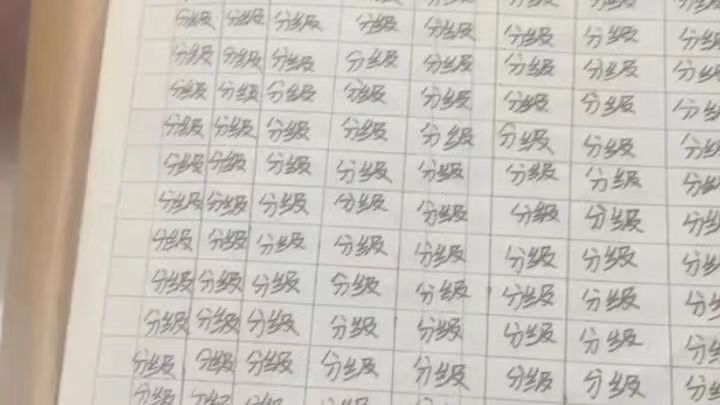 分级 分级 分级 分级 分级 分级 分级 分
分级 分级 分级 分级 分级 分级 分级 分
分级 分级 分级 分级 分级 分级 分级 分
分级 分级 分级 分级 分级 分级 分级 分
分级 分级 分级 分级 分级 分级 分级 分
分级 分级 分级 分级 分级 分级 分级 分
分级 分级 分级 分级 分级 分级 分级 分
分级 分级 分级 分级 分级 分级 分级 分
分级 分级 分级 分级 分级 分级 分级 分
分级 分级 分级 分级 分级 分级 分级 分
分级 分级